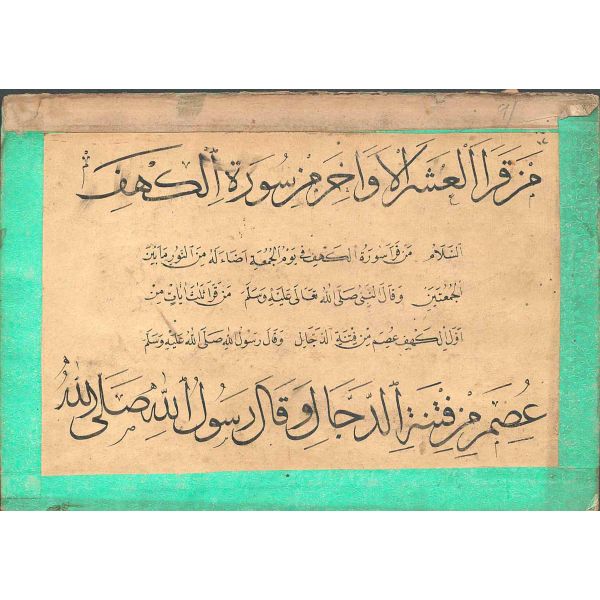 من قرأ العشر الأواخر من سورة الكهف
السلام من قرأ سورة الكهف في يوم الجمعة اضاء له من النور ما بين
الجمعتين وقال النبي صلى الله تعالى عليه وسلم من قرأ ثلث آيات من
اول الكهف عصم من فتنة الدجال وقال رسول الله صلى الله عليه وسلم
عصم من فتنة الدجال وقال رسول الله صلى الله